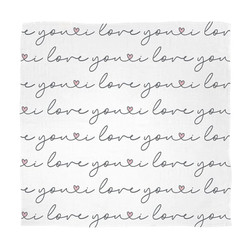 ove you♡i love you♡i love
i love you♡i love you
ove you♡i love you♡i love
i love you♡i love you
ove you♡i love you♡i love
i love you♡i love you
ove you♡i love you♡i love
i love you♡i love you